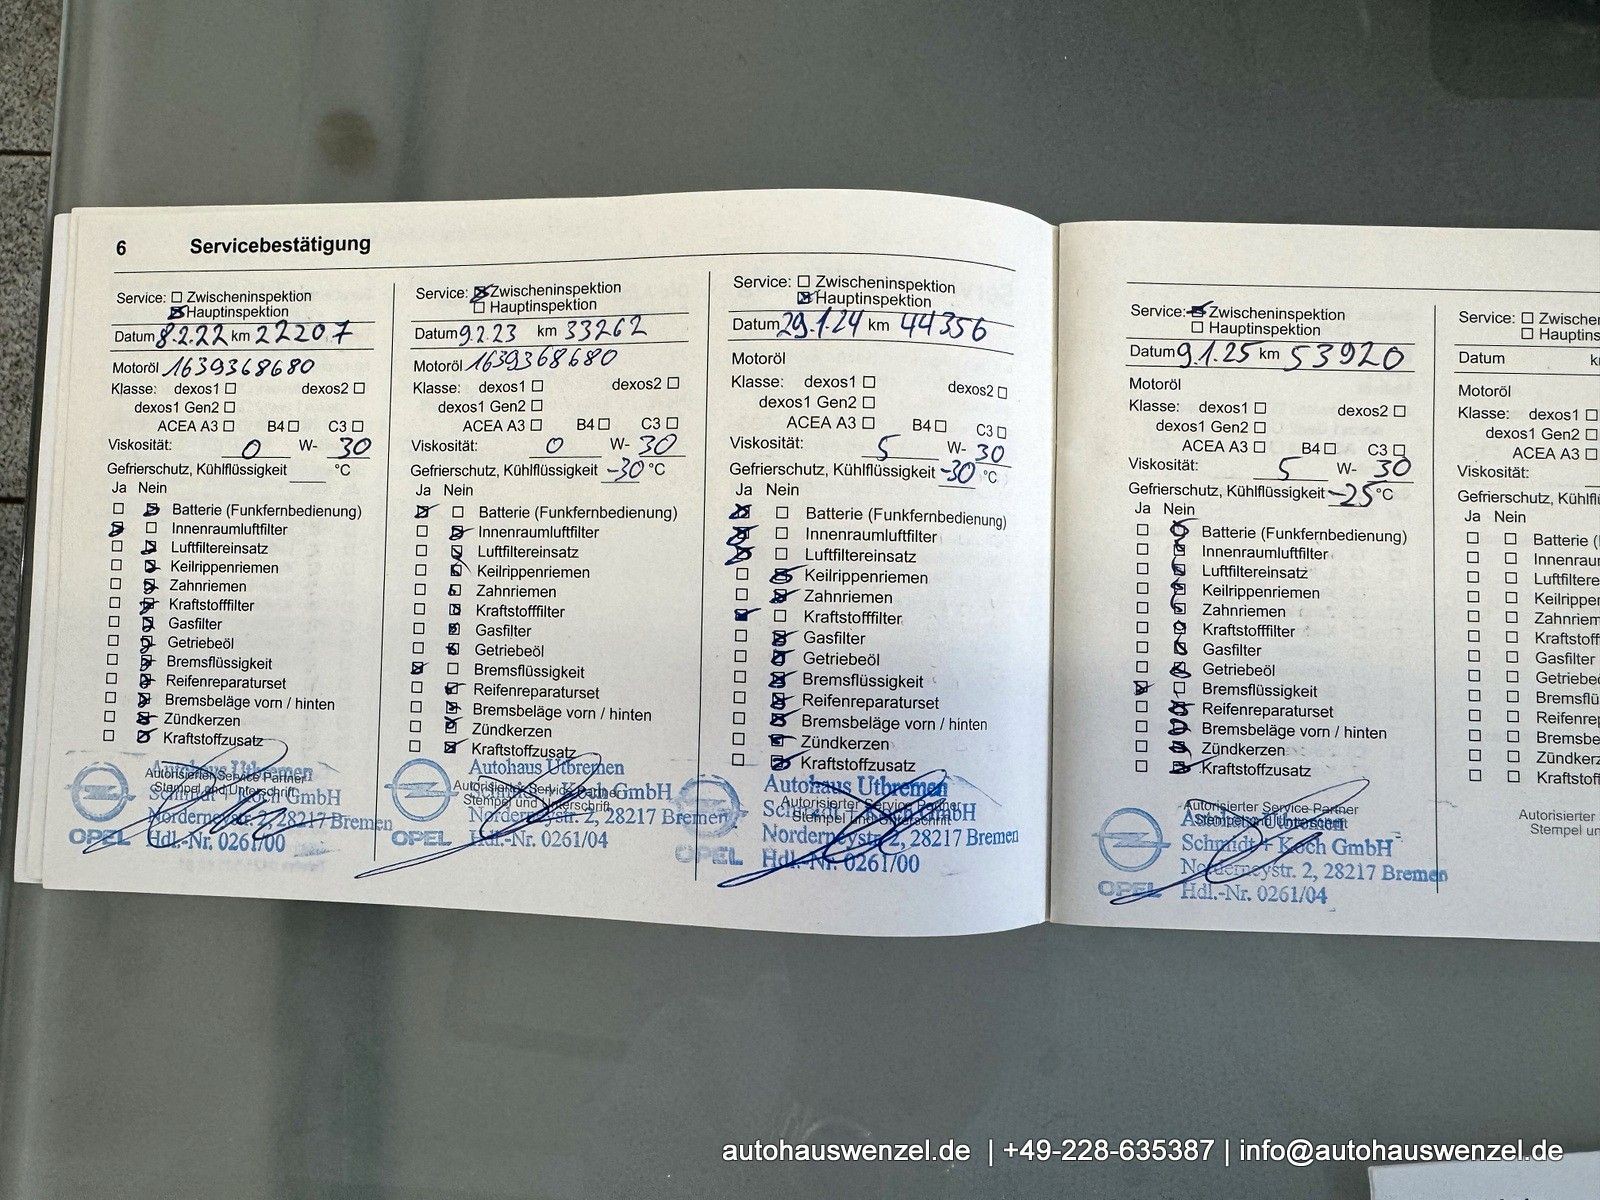 6 Servicebestätigung
Service: Zwischeninspektion
Hauptinspektion
Datum 8.2.22 km 22207
Motoröl 1639368680
Klasse: dexos1 dexos2
dexos1 Gen2
ACEA A3 B4 C3
Viskosität: 0 W- 30
Gefrierschutz, Kühlflüssigkeit °C
Ja Nein
Batterie (Funkfernbedienung)
Innenraumluftfilter
Luftfiltereinsatz
Keilrippenriemen
Zahnriemen
Kraftstofffilter
Gasfilter
Getriebeöl
Bremsflüssigkeit
Reifenreparaturset
Bremsbeläge vorn / hinten
Zündkerzen
Kraftstoffzusatz
Autorisierter Service Partner
Stempel und Unterschrift
Autohaus Utbremen
Schmidt + Koch GmbH
Norderneystr. 2, 28217 Bremen
OPEL Hdl.-Nr. 0261/00
Service: Zwischeninspektion
Hauptinspektion
Datum 9.2.23 km 33262
Motoröl 1639368680
Klasse: dexos1 dexos2
dexos1 Gen2
ACEA A3 B4 C3
Viskosität: 0 W- 30
Gefrierschutz, Kühlflüssigkeit -30 °C
Ja Nein
Batterie (Funkfernbedienung)
Innenraumluftfilter
Luftfiltereinsatz
Keilrippenriemen
Zahnriemen
Kraftstofffilter
Gasfilter
Getriebeöl
Bremsflüssigkeit
Reifenreparaturset
Bremsbeläge vorn / hinten
Zündkerzen
Kraftstoffzusatz
Autorisierter Service Partner
Stempel und Unterschrift
Autohaus Utbremen
Schmidt + Koch GmbH
Norderneystr. 2, 28217 Bremen
OPEL Hdl.-Nr. 0261/04
Service: Zwischeninspektion
Hauptinspektion
Datum 29.1.24 km 44356
Motoröl
Klasse: dexos1 dexos2
dexos1 Gen2
ACEA A3 B4 C3
Viskosität: 5 W- 30
Gefrierschutz, Kühlflüssigkeit -30 °C
Ja Nein
Batterie (Funkfernbedienung)
Innenraumluftfilter
Luftfiltereinsatz
Keilrippenriemen
Zahnriemen
Kraftstofffilter
Gasfilter
Getriebeöl
Bremsflüssigkeit
Reifenreparaturset
Bremsbeläge vorn / hinten
Zündkerzen
Kraftstoffzusatz
Autorisierter Service Partner
Stempel und Unterschrift
Autohaus Utbremen
Schmidt + Koch GmbH
Norderneystr. 2, 28217 Bremen
OPEL Hdl.-Nr. 0261/00
Service: Zwischeninspektion
Hauptinspektion
Datum 9.1.25 km 53920
Motoröl
Klasse: dexos1 dexos2
dexos1 Gen2
ACEA A3 B4 C3
Viskosität: 5 W- 30
Gefrierschutz, Kühlflüssigkeit -25 °C
Ja Nein
Batterie (Funkfernbedienung)
Innenraumluftfilter
Luftfiltereinsatz
Keilrippenriemen
Zahnriemen
Kraftstofffilter
Gasfilter
Getriebeöl
Bremsflüssigkeit
Reifenreparaturset
Bremsbeläge vorn / hinten
Zündkerzen
Kraftstoffzusatz
Autorisierter Service Partner
Stempel und Unterschrift
Autohaus Utbremen
Schmidt + Koch GmbH
Norderneystr. 2, 28217 Bremen
OPEL Hdl.-Nr. 0261/04
Service: Zwischenin
Hauptinsp
Datum k
Motoröl
Klasse: dexos1
dexos1 Gen2
ACEA A3
Viskosität:
Gefrierschutz, Kühlflü
Ja Nein
Batterie (
Innenraum
Luftfiltere
Keilrippen
Zahnriem
Kraftstoff
Gasfilter
Getriebe
Bremsflü
Reifenrep
Bremsbe
Zündkerz
Kraftstoff
Autorisierter
Stempel un
autohauswenzel.de | +49-228-635387 | info@autohauswenzel.de